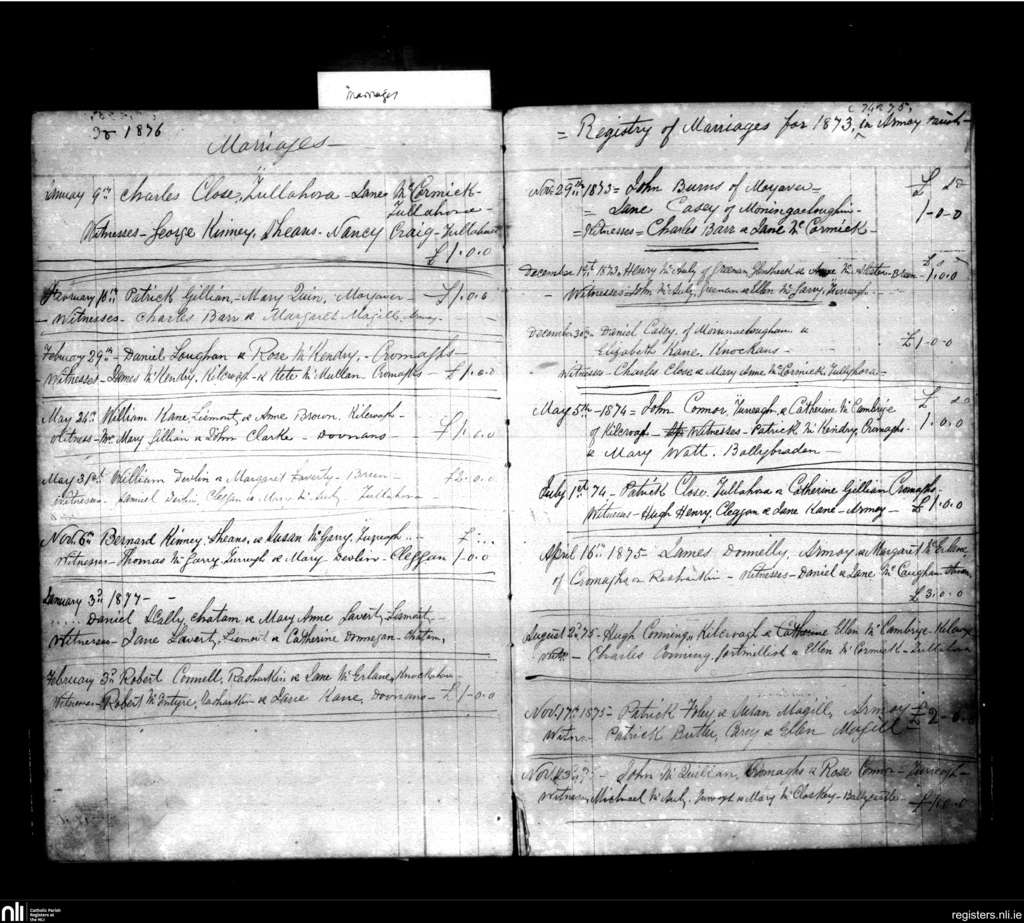 Marriages
1876
Marriages
January 9th Charles Close, Tullahora - Jane McCormick -
Tullahora -
Witnesses - George Kinney, Sheans - Nancy Craig - Tullahora
£1.0.0
February 10th Patrick Gillian - Mary Quin, Moyaver - £1.0.0
- Witnesses - Charles Barr & Margaret Magill, Armoy -
February 29th - Daniel Loughan & Rose McKendry - Cromaghs -
Witnesses - James McKendry, Kilcroagh - & Kate McMullan Cromaghs - £1.0.0
May 24th William Kane, Lismont, & Anne Brown, Kilcroagh -
Witness - Mary Gillian & John Clarke - Doonans - £1.0.0
May 31st William Devlin & Margaret Laverty - Breen - £2.0.0
Witnesses - Daniel Devlin, Cleggan & Mary McAuly Tullahora -
Nov. 6th Bernard Kinney, Sheans, & Susan McGarry, Turreagh - £
Witnesses - Thomas McGarry Turreagh & Mary Devlin - Cleggan 1.0.0
January 3rd 1877 - -
Daniel Scally, Chatam & Mary Anne Laverty Lismont -
Witnesses - Jane Laverty, Lismont & Catherine Donnegan - Chatam,
February 3rd Robert Connell, Rasharkin & Jane McErlane, Knockahun
Witnesses - Robert McIntyre, Rasharkin & Jane Kane, Doonans - £1-0-0
74 & 75,
= Registry of Marriages for 1873, in Armoy Parish -
Nov. 29th 1873 = John Burns of Moyaver = £
= Jane Casey of Moninacloughin - 1-0-0
= Witnesses = Charles Barr & Jane McCormick -
December 19th 1873, Henry McAuly of Greenan Glenshesk & Anne McAlister - Breen - 1.0.0
- Witnesses = John McAuly, Greenan & Ellen McGarry, Turreagh -
December 30th - Daniel Casey, of Moninacloughan &
Elizabeth Kane, Knockans - £1-0-0
Witnesses - Charles Close & Mary Anne McCormick, Tullyhora -
May 5th - 1874 = John Connor, Turreagh, & Catherine McCambrige £
of Kilcroagh - Witnesses - Patrick McKendry, Cromaghs - 1.0.0
& Mary Watt. Ballybradon -
July 1st 74 - Patrick Close, Tullahora & Catherine Gillian Cromaghs -
Witness - Hugh Henry, Cleggan & Jane Kane - Armoy - £1.0.0
April 16th 1875 James Donnelly, Armoy & Margaret McErlane
of Cromaghs or Rasharkin - Witnesses - Daniel & Jane McCaughan
£3.0.0
August 2nd 75 - Hugh Conning, Kilcroagh & Catherine Ellen McCambrige - Kilcroagh
Witn - Charles Conning & Ellen McCormick - Tullahora
Nov. 17th 1875 - Patrick Foley & Susan Magill, Armoy £2-0-0
Witns - Patrick Butler, Carey & Ellen Magill
Nov. - John McQuillan, Cromaghs & Rose Connor - Turreagh -
Witness, Michael McAuly, Turreagh & Mary McCloskey - £1.0.0
nli
Catholic Parish
Registers at
the NLI
registers.nli.ie